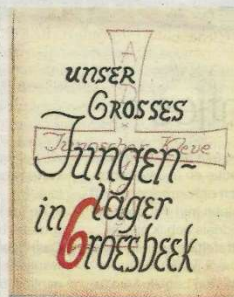 unser
Grosses
Jungen-
lager
in Groesbeek
Jungschar Kleve